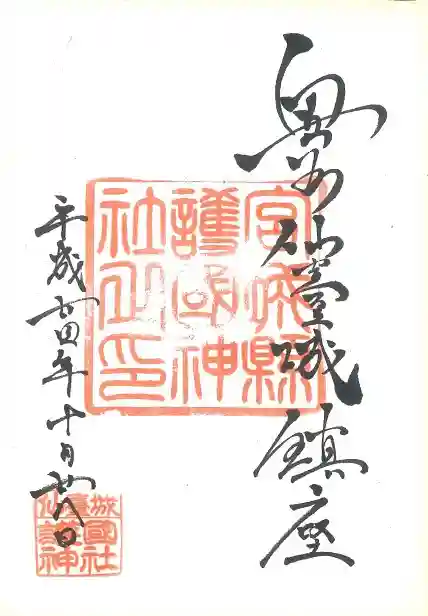 奥州仙臺城鎮座
宮城縣
護國神
社之印
平成廿四年十月廿八日
仙臺城
護國
神社